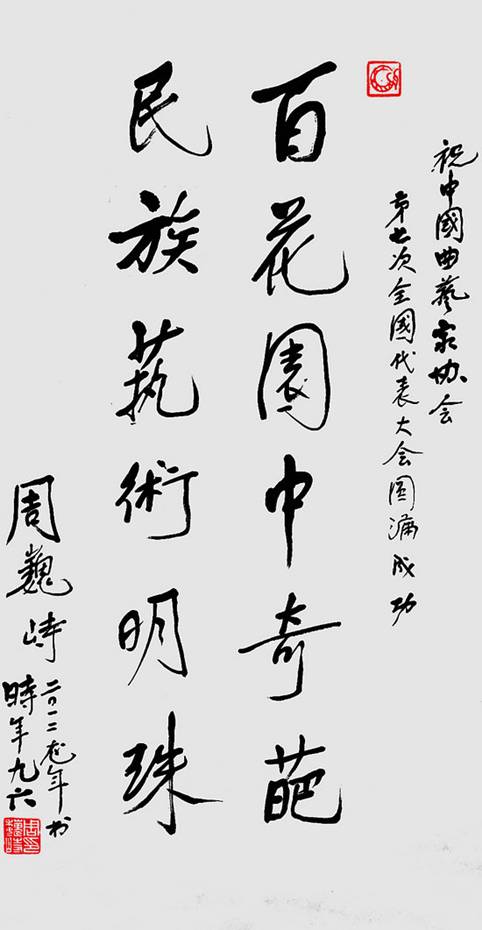 祝中國曲藝家协会
第七次全國代表大会圆满成功
百花園中奇葩
民族藝術明珠
周巍峙
二〇一二龙年书
時年九六